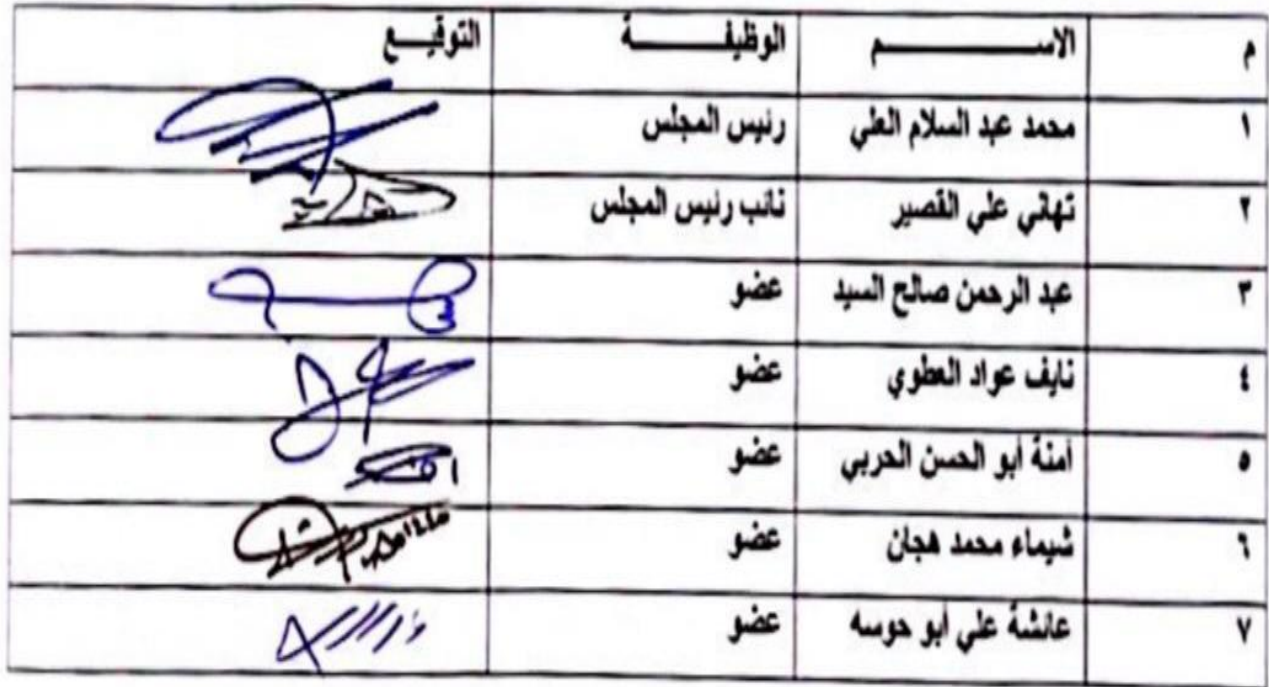 م الاسم الوظيفة التوقيع
١ محمد عبد السلام العلي رئيس المجلس
٢ تهاني علي القصير نائب رئيس المجلس
٣ عبد الرحمن صالح السيد عضو
٤ نايف عواد العطوي عضو
٥ أمنة أبو الحسن الحربي عضو
٦ شيماء محمد هجان عضو
٧ عائشة علي أبو حوسه عضو